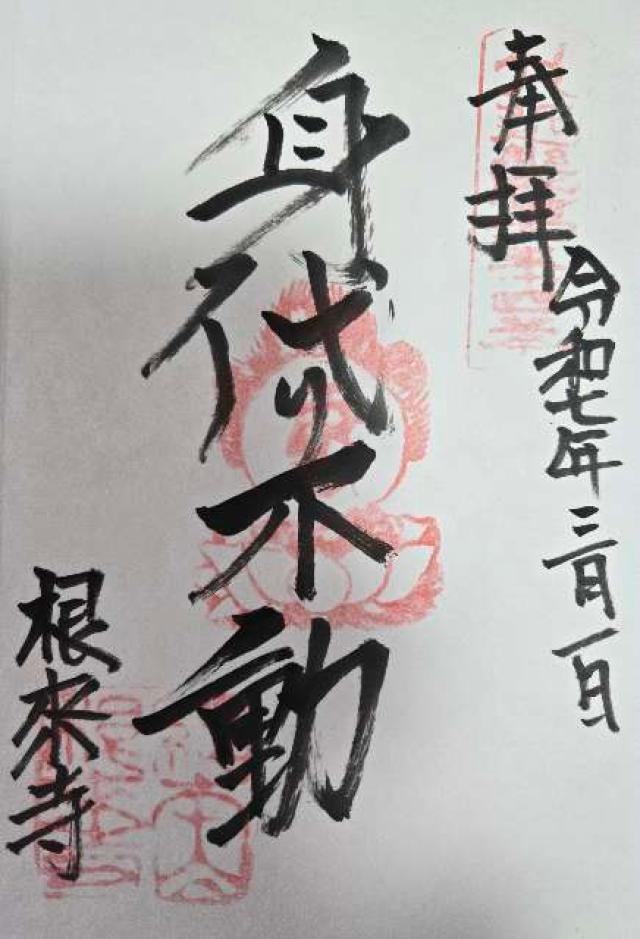 奉拝
令和七年三月一日
身代不動
根来寺